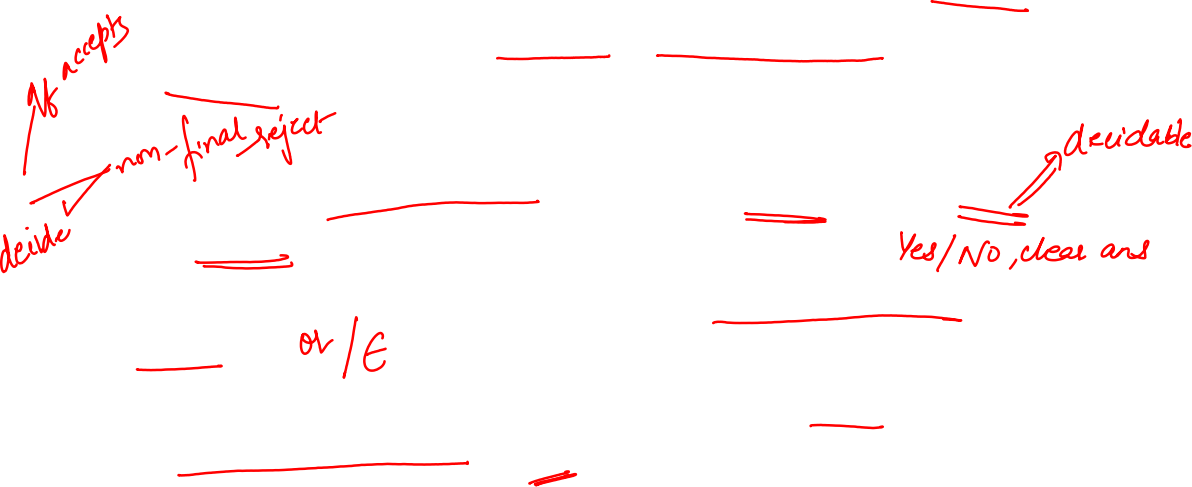 accepts
non-final reject
decidable
deide
Yes/No, clear ans
or / ∈